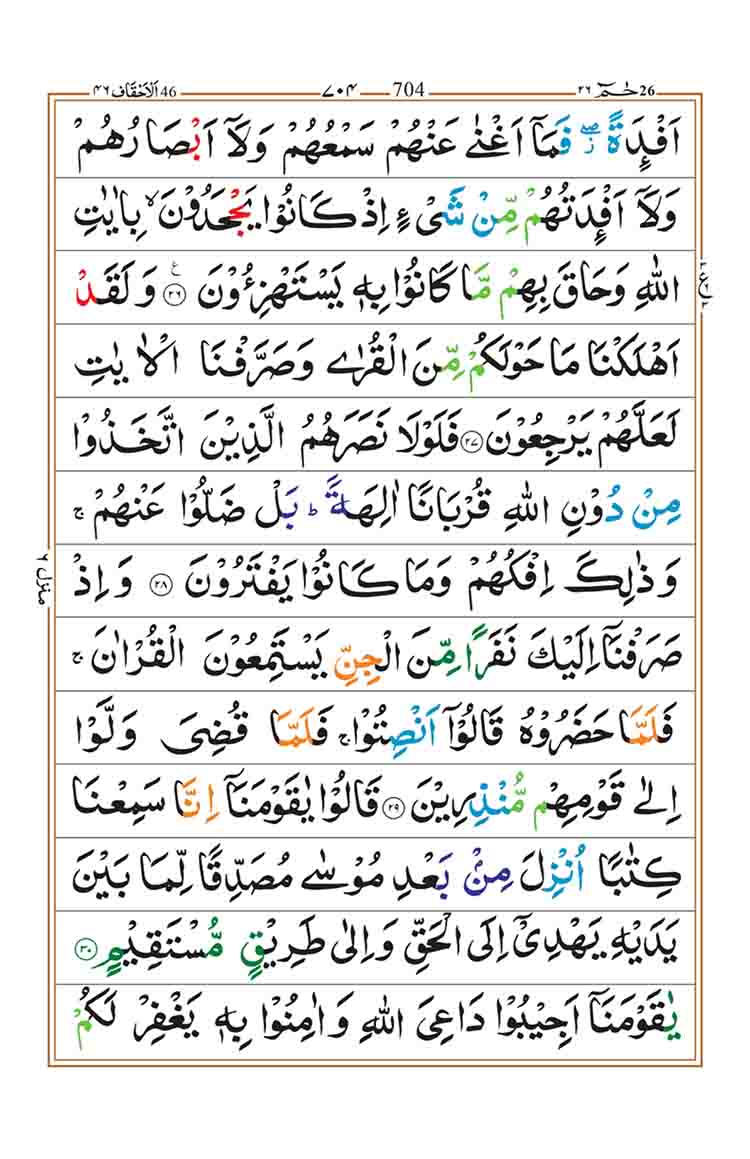 الاحقاف ٤٦ 46 704 ٧٠٤ حٰمٓ ٢٦ 26
اَفْـِٕدَةً ۖ٘ فَمَاۤ اَغْنٰى عَنْهُمْ سَمْعُهُمْ وَلَاۤ اَبْصَارُهُمْ
وَلَاۤ اَفْـِٕدَتُهُمْ مِّنْ شَیْءٍ اِذْ كَانُوْا یَجْحَدُوْنَ ۙ بِاٰیٰتِ
اللّٰهِ وَحَاقَ بِهِمْ مَّا كَانُوْا بِهٖ یَسْتَهْزِءُوْنَ ۧ ﴿۲۶﴾ وَلَقَدْ
اَهْلَكْنَا مَا حَوْلَكُمْ مِّنَ الْقُرٰى وَصَرَّفْنَا الْاٰیٰتِ
لَعَلَّهُمْ یَرْجِعُوْنَ ﴿۲۷﴾ فَلَوْلَا نَصَرَهُمُ الَّذِیْنَ اتَّخَذُوْا
مِنْ دُوْنِ اللّٰهِ قُرْبَانًا اٰلِهَةً ؕ بَلْ ضَلُّوْا عَنْهُمْ ۚ
وَذٰلِكَ اِفْكُهُمْ وَمَا كَانُوْا یَفْتَرُوْنَ ﴿۲۸﴾ وَاِذْ
صَرَفْنَاۤ اِلَیْكَ نَفَرًا مِّنَ الْجِنِّ یَسْتَمِعُوْنَ الْقُرْاٰنَ ۚ
فَلَمَّا حَضَرُوْهُ قَالُوْۤا اَنْصِتُوْا ۚ فَلَمَّا قُضِیَ وَلَّوْا
اِلٰى قَوْمِهِمْ مُّنْذِرِیْنَ ﴿۲۹﴾ قَالُوْا یٰقَوْمَنَاۤ اِنَّا سَمِعْنَا
كِتٰبًا اُنْزِلَ مِنْۢ بَعْدِ مُوْسٰى مُصَدِّقًا لِّمَا بَیْنَ
یَدَیْهِ یَهْدِیْۤ اِلَى الْحَقِّ وَاِلٰى طَرِیْقٍ مُّسْتَقِیْمٍ ﴿۳۰﴾
یٰقَوْمَنَاۤ اَجِیْبُوْا دَاعِیَ اللّٰهِ وَاٰمِنُوْا بِهٖ یَغْفِرْ لَكُمْ
منزل ٦